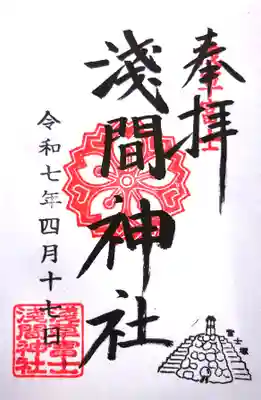 奉拝
淺間神社
令和七年四月十七日
富士塚
淺間神社